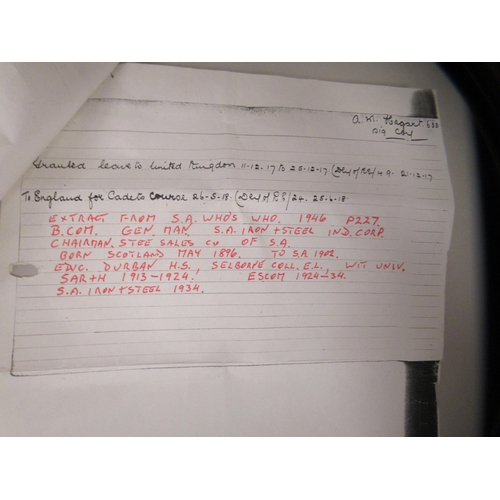 A. M. Hagart 633
Sig Coy
Granted leave to United Kingdom 11-12-17 to 25-12-17. 21-12-17
To England for Cadets Course 26-5-18. 25-6-18
EXTRACT FROM S.A. WHO'S WHO. 1946 P227.
B.COM. GEN. MAN. S.A. IRON + STEEL IND. CORP.
CHAIRMAN. STEE SALES CO OF S.A.
BORN SCOTLAND MAY 1896. TO S.A 1902.
EDUC. DURBAN H.S. SELBORNE COLL. E.L., WIT UNIV.
SAR+H 1913-1924, ESCOM 1924-34.
S.A. IRON + STEEL 1934.